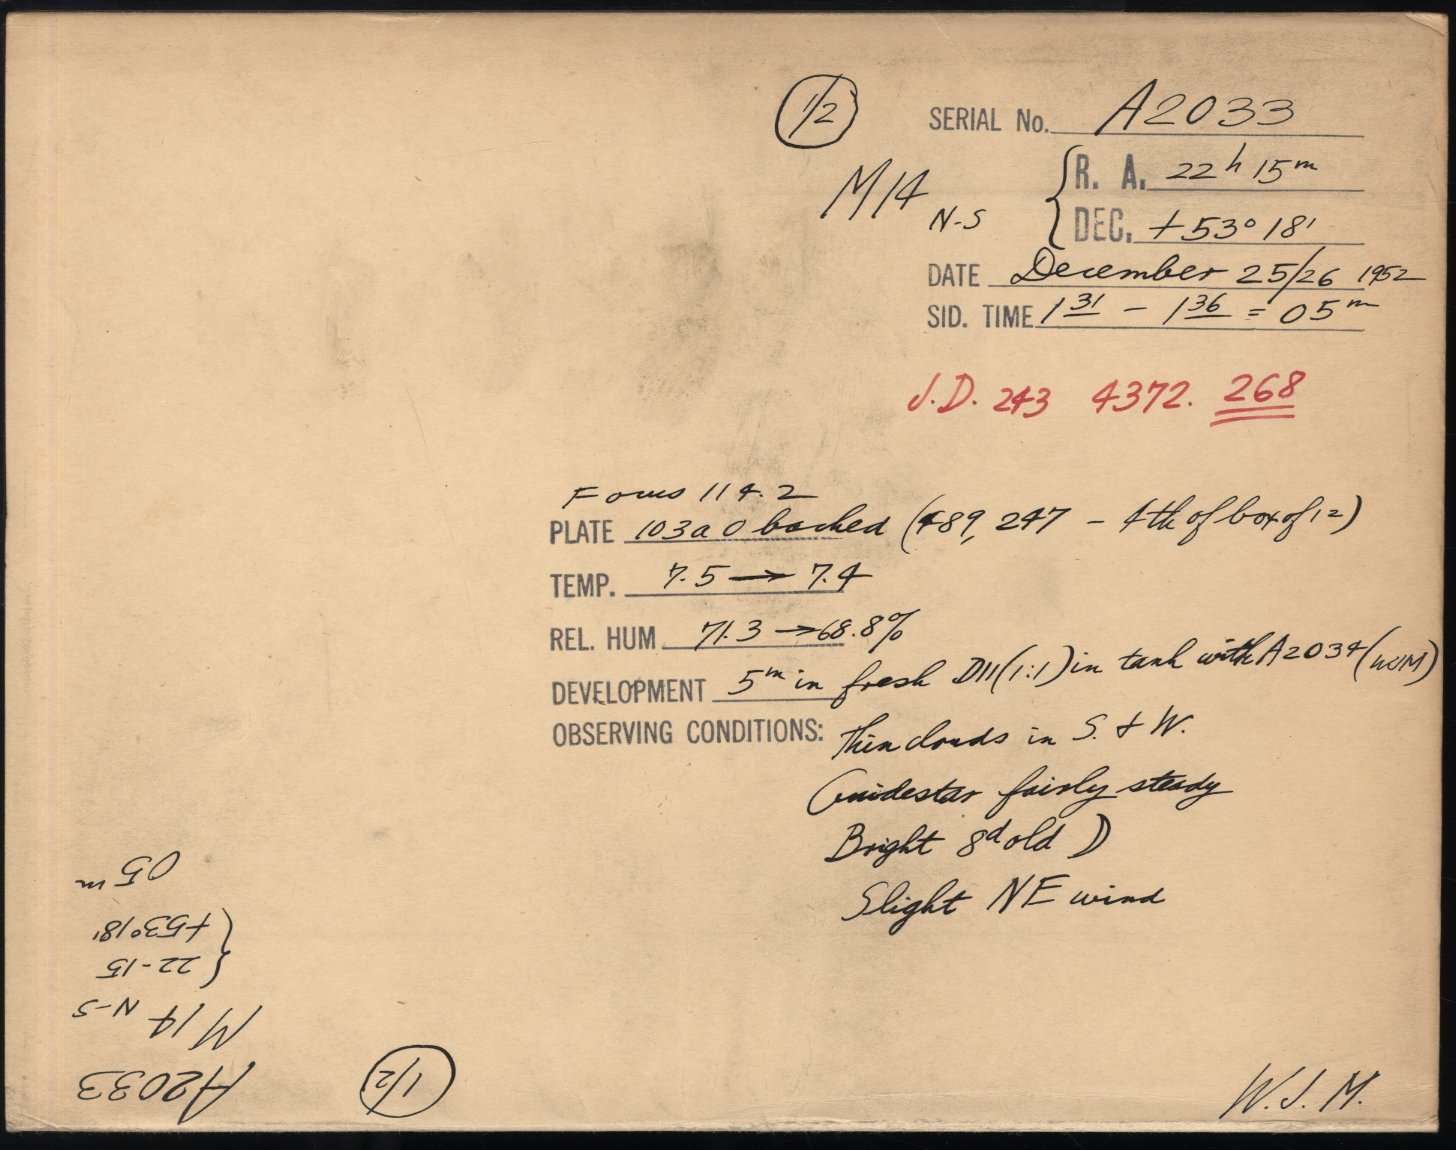 1/2
SERIAL No. A2033
M14 N-S
R. A. 22h 15m
DEC. +53° 18'
DATE December 25/26 1952
SID. TIME 1 31 – 1 36 = 05m
J.D. 243 4372. 268
Focus 114.2
PLATE 103a O backed (489, 247 – 4th of box of 12)
TEMP. 7.5 → 7.4
REL. HUM. 71.3 → 68.8%
DEVELOPMENT 5m in fresh D11 (1:1) in tank with A2034 (WJM)
OBSERVING CONDITIONS: Thin clouds in S. & W.
Guidestar fairly steady
Bright 8d old
Slight NE wind
W.J.M.
1/2
A2033
M14 N-S
22-15
+53°18'
05m